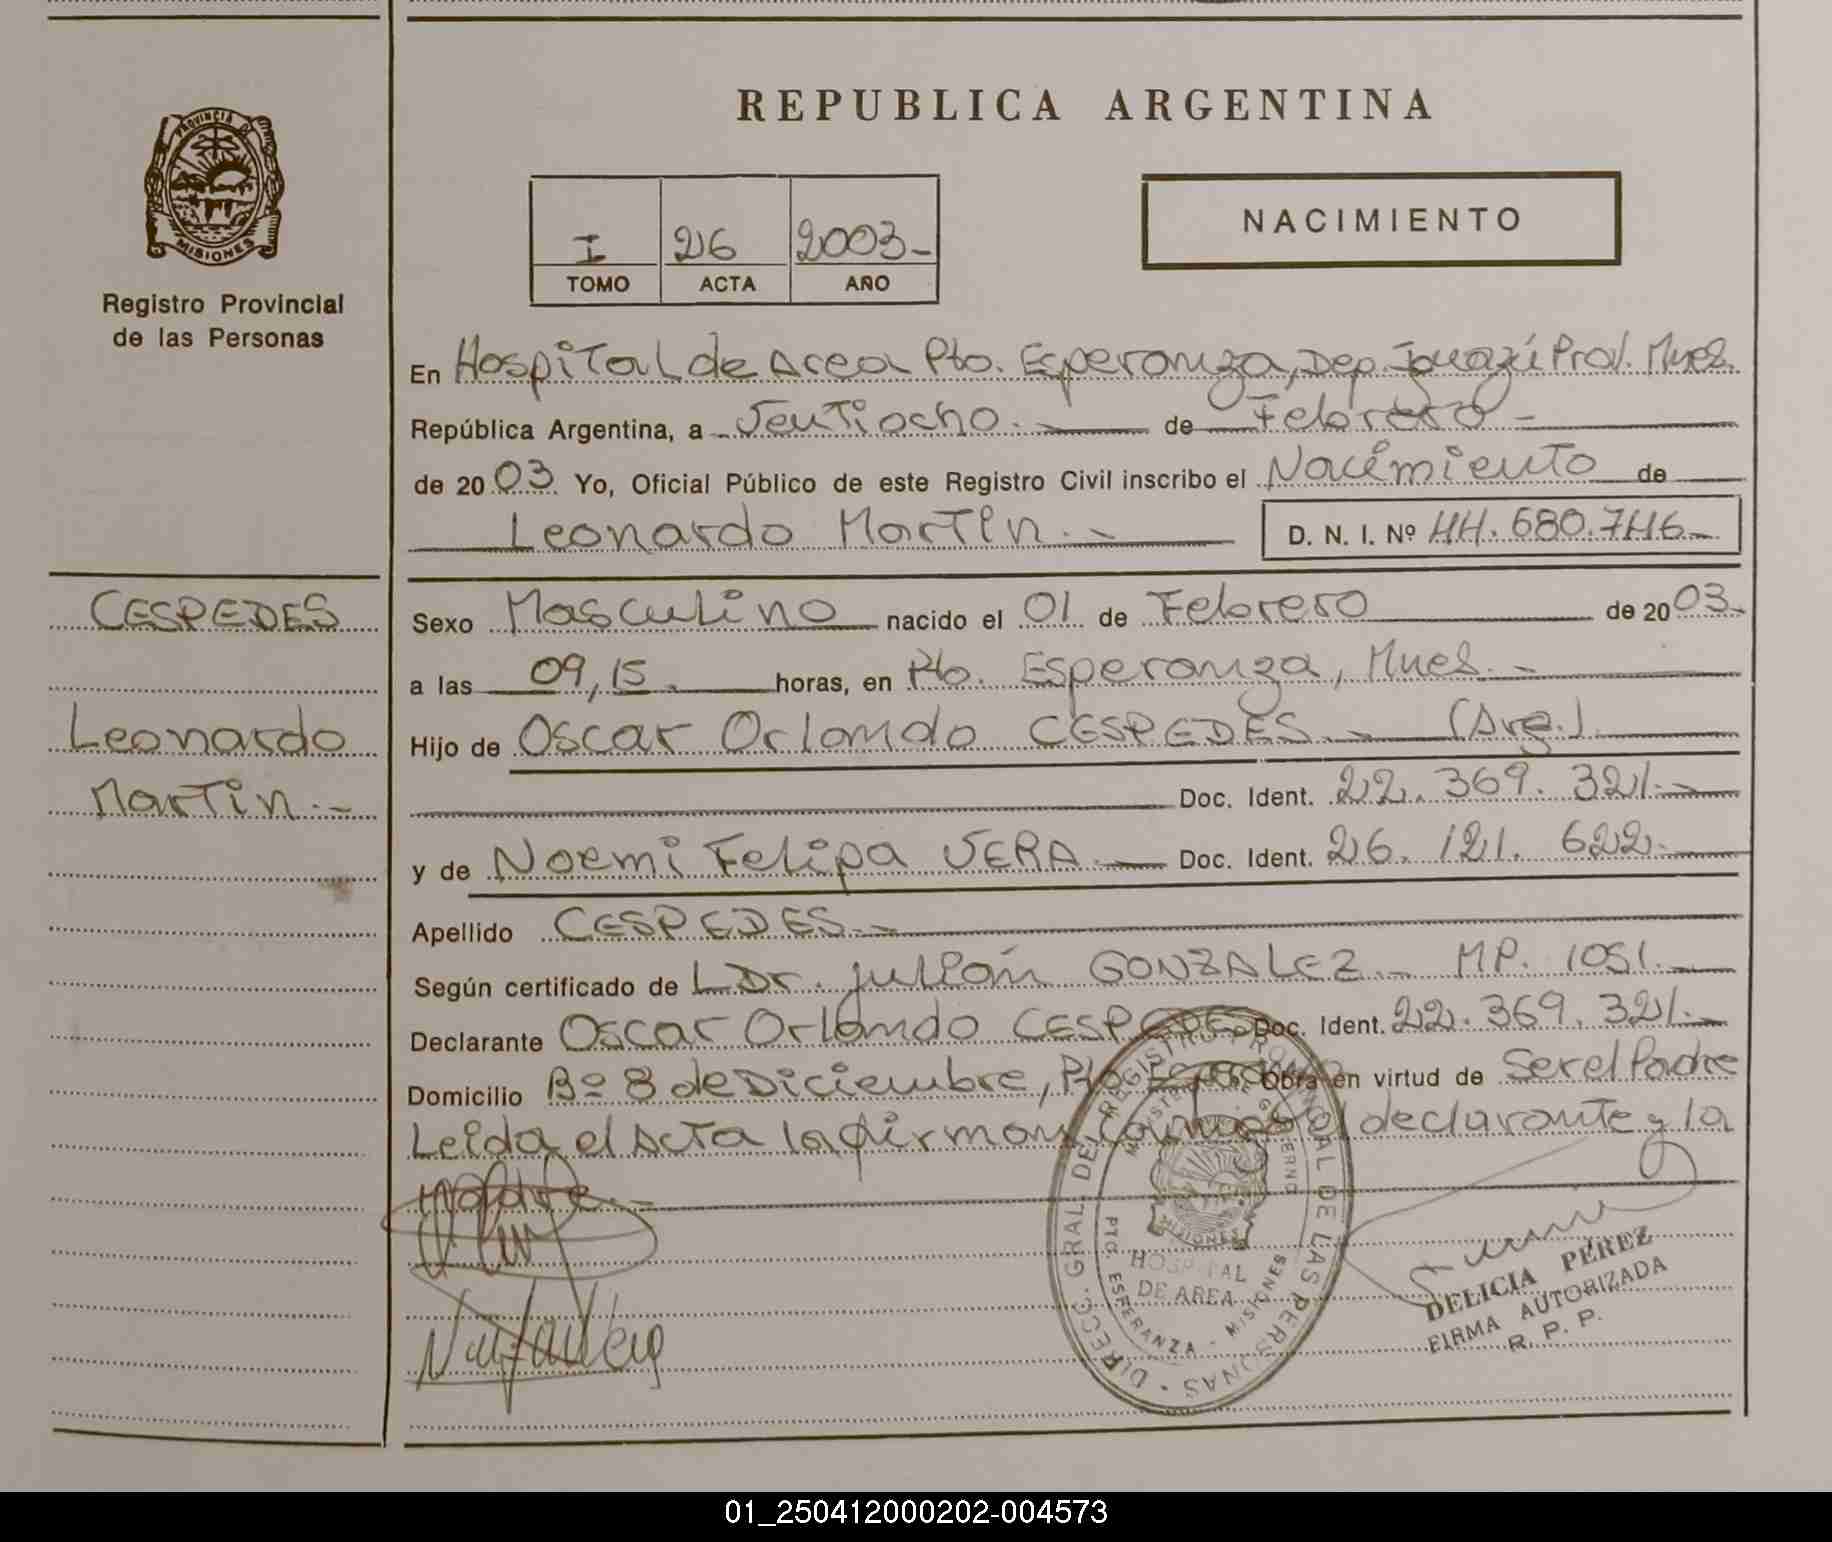 REPUBLICA ARGENTINA
PROVINCIA DE
MISIONES
Registro Provincial
de las Personas
I 26 2003-
TOMO ACTA AÑO
NACIMIENTO
En Hospital de Area Pto. Esperanza, Dep. Iguazú Prov. Mnes.
República Argentina, a Veintiocho.- de Febrero-
de 2003. Yo, Oficial Público de este Registro Civil inscribo el Nacimiento de
Leonardo Martin.- D. N. I. Nº 44.680.746-
CESPEDES
Leonardo
Martin.-
Sexo Masculino nacido el 01 de Febrero de 2003-
a las 09,15. horas, en Pto. Esperanza, Mnes.-
Hijo de Oscar Orlando CESPEDES.- (Arg.)
Doc. Ident. 22.369.321.-
y de Noemi Felipa VERA.- Doc. Ident. 26.121.622.-
Apellido CESPEDES.-
Según certificado de L Dr. Julián GONZALEZ.- MP. 1051.-
Declarante Oscar Orlando CESPEDES Doc. Ident. 22.369.321.-
Domicilio Bº 8 de Diciembre, Pto Obra en virtud de Ser el Padre
Leida el Acta la firman el declarante y la
madre.-
DIRECC. GRAL. DE REGISTRO PROVINCIAL DE LAS PERSONAS
MISIONES
HOSPITAL
DE AREA
PTO. ESPERANZA - MISIONES
DELICIA PEREZ
FIRMA AUTORIZADA
R. P. P.
01_250412000202-004573